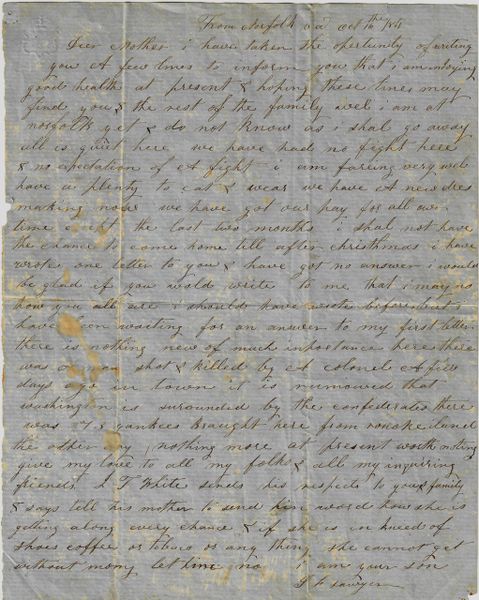 From Norfolk va oct 10th
Dier Mother i have taken the opertunity of writing
you A few times to inform you that i am injoying
good health at present & hoping these lines may
find you & the rest of the family wel i am at
norfolk yet & do not know as i shal go away
all is quiet here we have had no fight here
& no expectation of A fight i am fareing very wel
have a plenty to eat & wear we have A new dres
making now we have got our pay for all our
time except the last two months i shal not have
the chance to come home till after christhmas i have
wrote one letter to you & have got no answer i would
be glad if you wold write to me that i may no
how you all are i should have wrote before but i
have been waiting for an answer to my first letter
there is nothing new of much inportance here there
was one man shot & killed by A colonel A few
days ago in town it is rumoured that
washington is surounded by the confederates there
was 73 yankees braught here from ronoke iland
the other day nothing more at present worth noting
give my love to all my folks & all my inquiring
friends T White sends his respects to you & family
& says tell his mother to send him word how she is
getting along every chance & if she is in kneed of
shoes coffee or tobaco or any thing she cannot get
without mony let him no i am your son
Sawyer